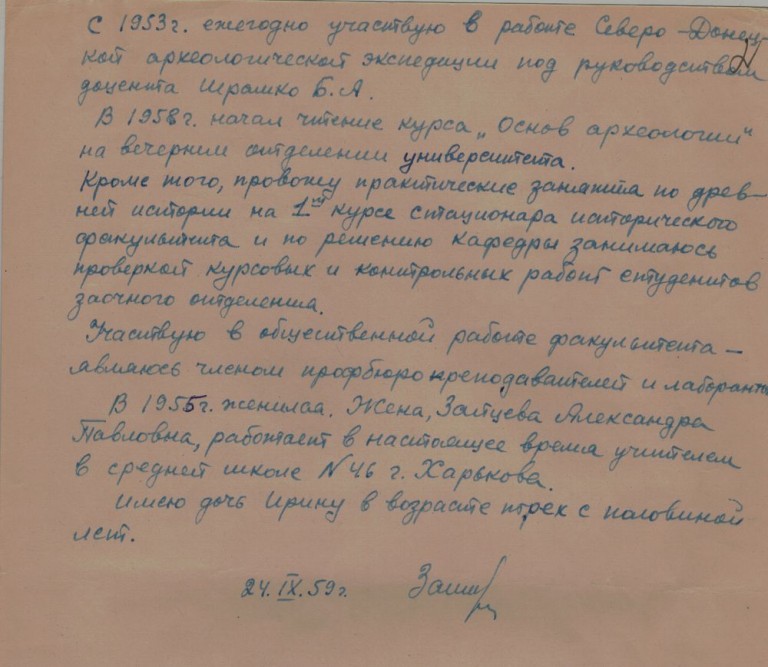 С 1953 г. ежегодно участвую в работе Северо-Донец-
кой археологической экспедиции под руководством
доцента Шрамко Б.А.
В 1958 г. начал чтение курса „Основ археологии“
на вечернем отделении университета.
Кроме того, провожу практические занятия по древ-
ней истории на 1ом курсе стационара исторического
факультета и по решению кафедры занимаюсь
проверкой курсовых и контрольных работ студентов
заочного отделения.
Участвую в общественной работе факультета –
являюсь членом профбюро преподавателей и лаборантов
В 1955 г. женился. Жена, Зайцева Александра
Павловна, работает в настоящее время учителем
в средней школе N 46 г. Харькова.
Имею дочь Ирину в возрасте трех с половиной
лет.
24.IX.59 г.